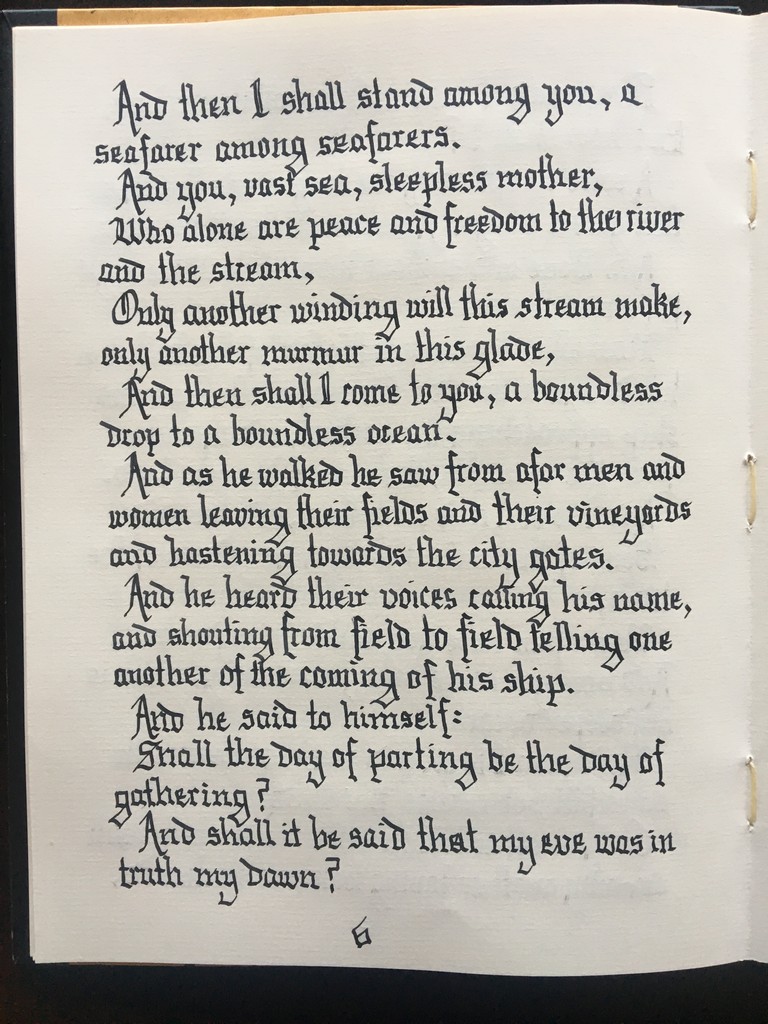 And then I shall stand among you, a
seafarer among seafarers.
And you, vast sea, sleepless mother,
Who alone are peace and freedom to the river
and the stream,
Only another winding will this stream make,
only another murmur in this glade,
And then shall I come to you, a boundless
drop to a boundless ocean.
And as he walked he saw from afar men and
women leaving their fields and their vineyards
and hastening towards the city gates.
And he heard their voices calling his name,
and shouting from field to field telling one
another of the coming of his ship.
And he said to himself:
Shall the day of parting be the day of
gathering?
And shall it be said that my eve was in
truth my dawn?
6